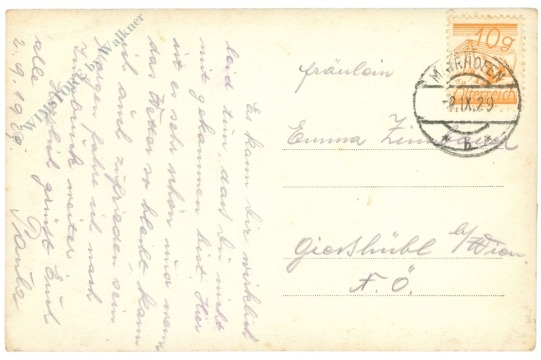 Es kann dir wirklich
leid tun, das Du nicht
mit gekommen bist. Hier
ist es sehr schön nur wenn
das Wetter so bleibt kann
ich auch zufrieden sein
Morgen fahre ich nach
Innsbruck weiter
alle Herzlich grüsst Euch
Paula
2.9.1929.
WIMSTORE by Walkner
10g
Österreich
MAYRHOFEN
-2.IX.29
* b *
fräulein
Emma
Giesshübl b/Wien.
N. Ö.